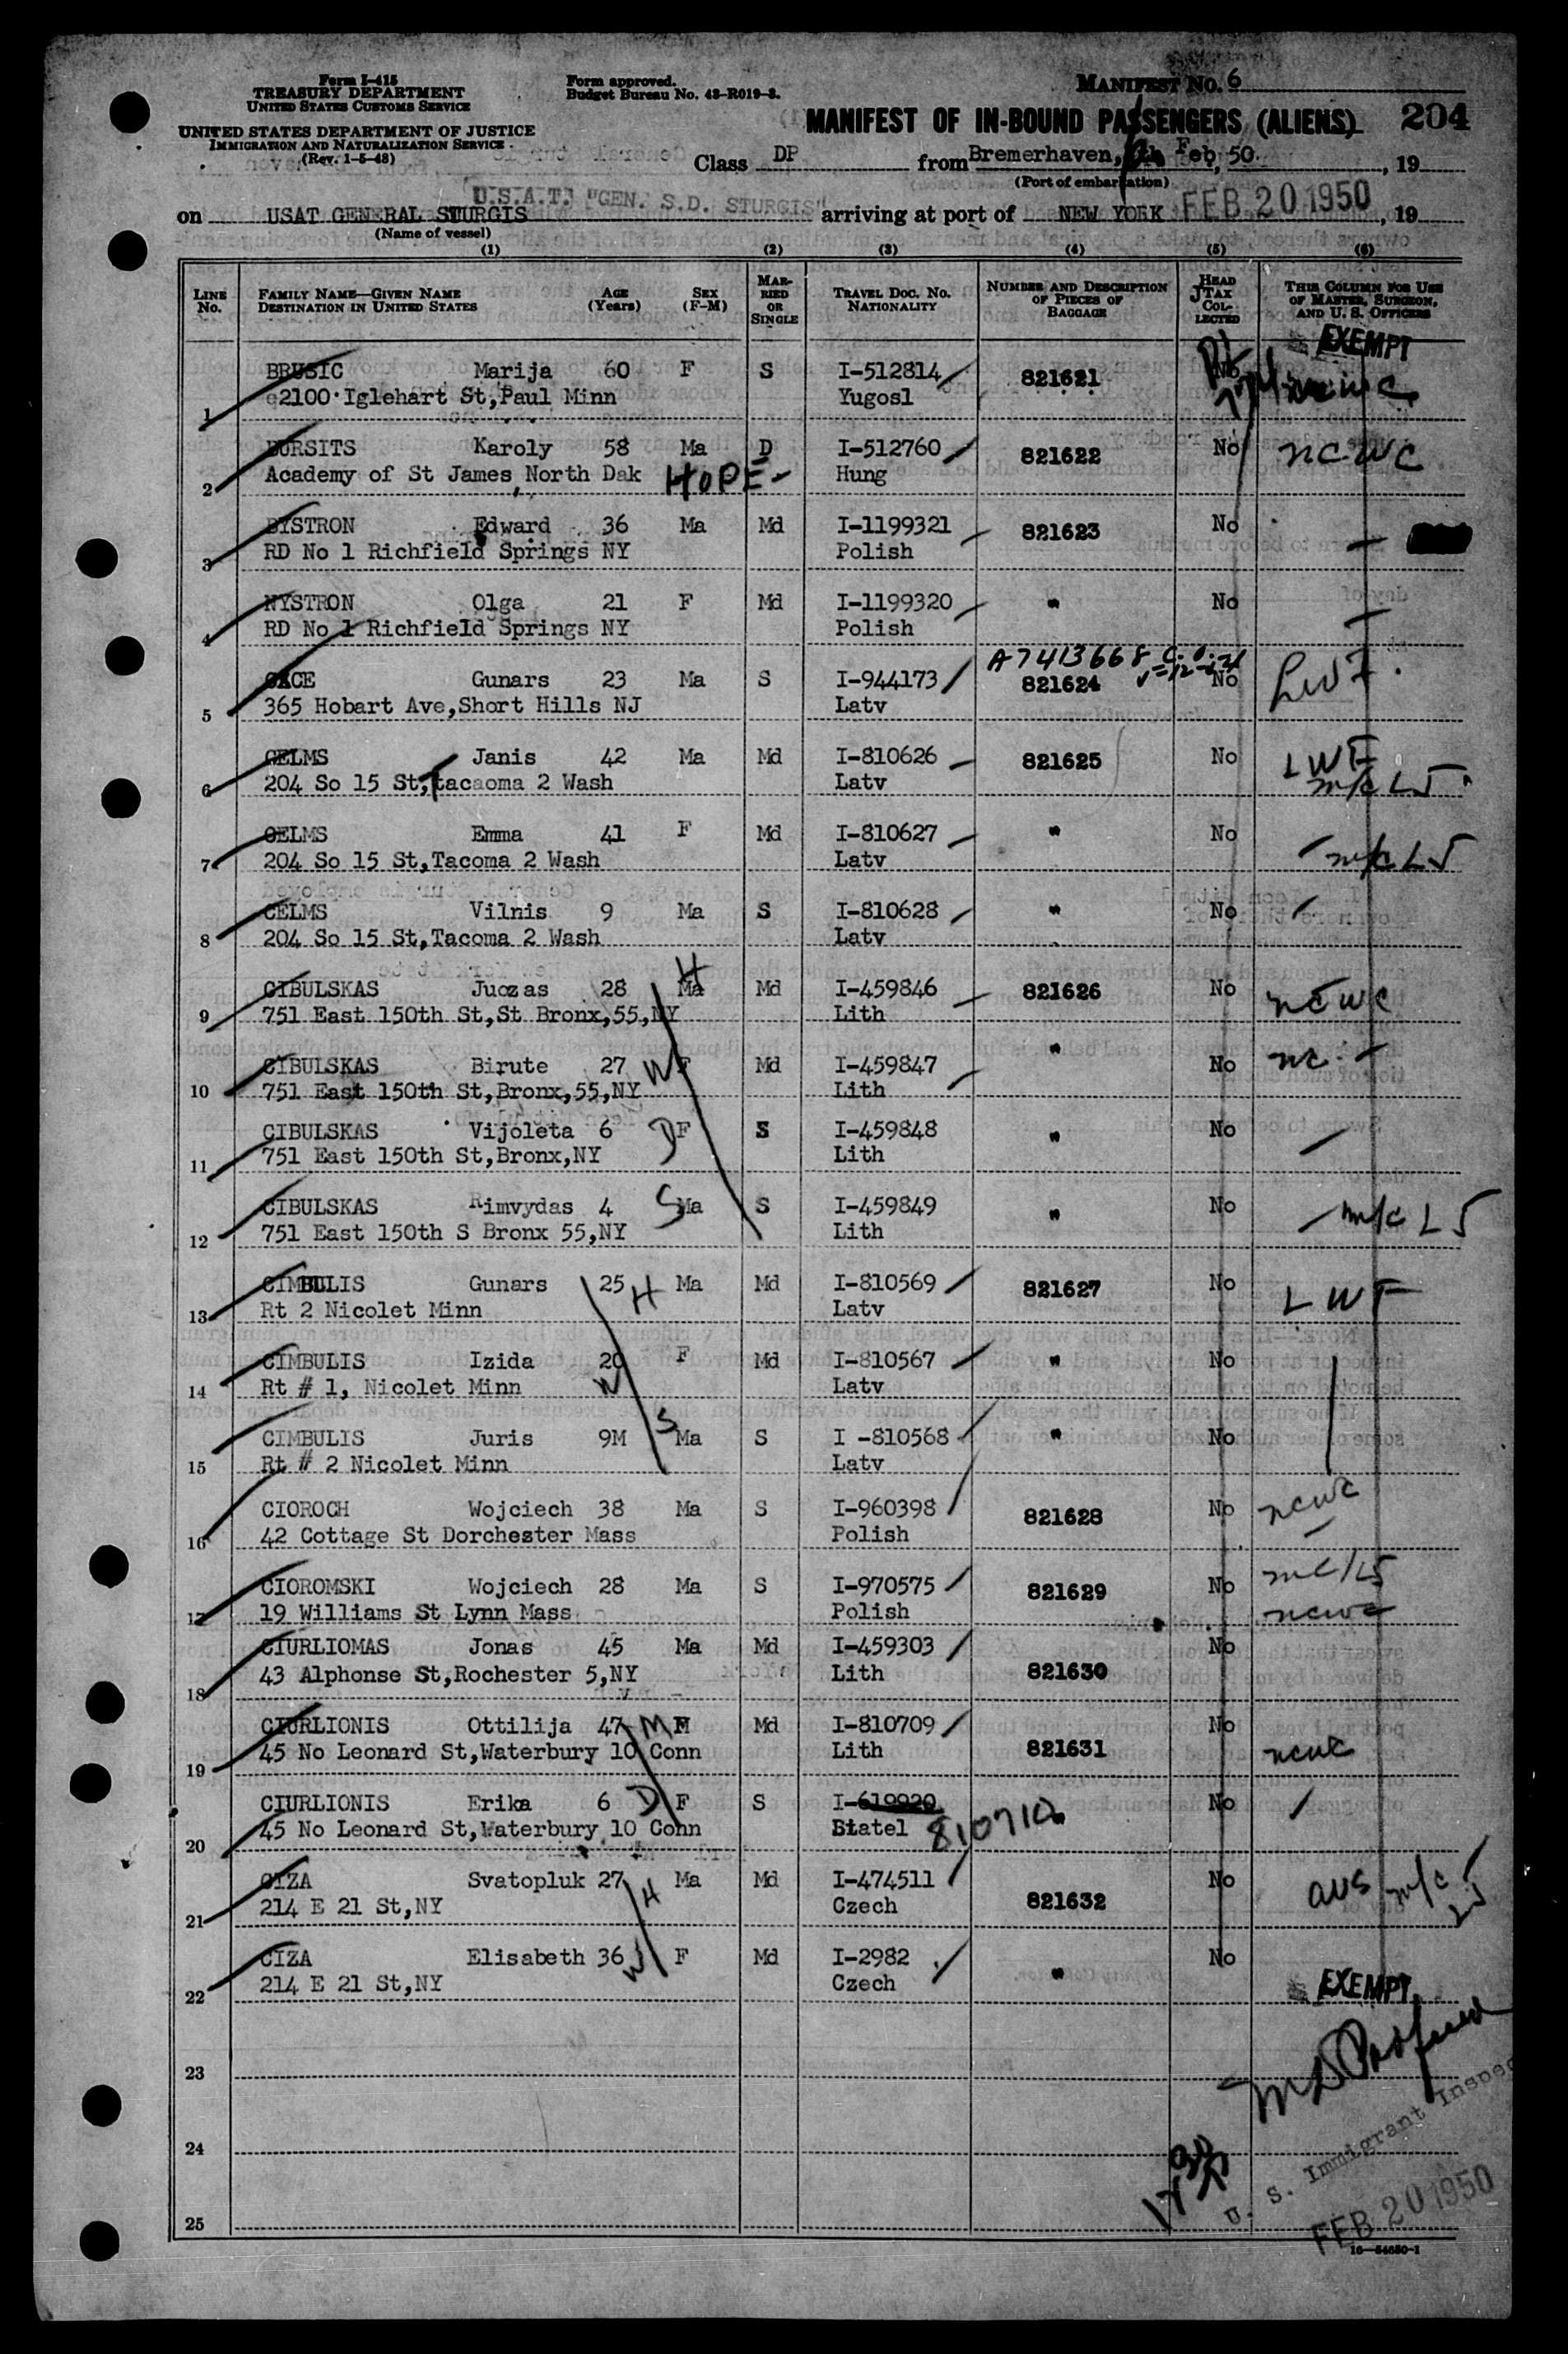 Form I-415
TREASURY DEPARTMENT
UNITED STATES CUSTOMS SERVICE
UNITED STATES DEPARTMENT OF JUSTICE
IMMIGRATION AND NATURALIZATION SERVICE
(Rev. 1-5-48)
Form approved.
Budget Bureau No. 43-R019-3.
MANIFEST NO. 6
MANIFEST OF IN-BOUND PASSENGERS (ALIENS) 204
Class DP from Bremerhaven, Feb, 50. , 19
(Port of embarkation)
U.S.A.T. "GEN. S.D. STURGIS"
on USAT GENERAL STURGIS arriving at port of NEW YORK FEB 20 1950, 19
(Name of vessel)
(1) (2) (3) (4) (5) (6)
LINE No. FAMILY NAME—GIVEN NAME DESTINATION IN UNITED STATES AGE (Years) SEX (F-M) MARRIED OR SINGLE TRAVEL DOC. No. NATIONALITY NUMBER AND DESCRIPTION OF PIECES OF BAGGAGE HEAD TAX COLLECTED THIS COLUMN FOR USE OF MASTER, SURGEON, AND U. S. OFFICERS
EXEMPT
BRUSIC Marija 60 F S I-512814 821621 No
1 2100 Iglehart St,Paul Minn Yugosl
BURSITS Karoly 58 Ma D I-512760 821622 No ncwc
2 Academy of St James North Dak HOPE Hung
BYSTRON Edward 36 Ma Md I-1199321 821623 No
3 RD No 1 Richfield Springs NY Polish
NYSTRON Olga 21 F Md I-1199320 " No
4 RD No 1 Richfield Springs NY Polish
A7413668
CACE Gunars 23 Ma S I-944173 821624 No LWF
5 365 Hobart Ave,Short Hills NJ Latv
CELMS Janis 42 Ma Md I-810626 821625 No LWF
6 204 So 15 St,Tacaoma 2 Wash Latv m/c LS
CELMS Emma 41 F Md I-810627 " No
7 204 So 15 St,Tacoma 2 Wash Latv m/c LS
CELMS Vilnis 9 Ma S I-810628 " No
8 204 So 15 St,Tacoma 2 Wash Latv
CIBULSKAS Juozas 28 H Ma Md I-459846 821626 No ncwc
9 751 East 150th St,St Bronx,55,NY Lith
CIBULSKAS Birute 27 W F Md I-459847 " No nc
10 751 East 150th St,Bronx,55,NY Lith
CIBULSKAS Vijoleta 6 D F S I-459848 " No
11 751 East 150th St,Bronx,NY Lith
CIBULSKAS Rimvydas 4 S Ma S I-459849 " No m/c LS
12 751 East 150th S Bronx 55,NY Lith
CIMBULIS Gunars 25 H Ma Md I-810569 821627 No LWF
13 Rt 2 Nicolet Minn Latv
CIMBULIS Izida 20 W F Md I-810567 " No
14 Rt # 1, Nicolet Minn Latv
CIMBULIS Juris 9M S Ma S I -810568 " No
15 Rt # 2 Nicolet Minn Latv
CIOROCH Wojciech 38 Ma S I-960398 821628 No ncwc
16 42 Cottage St Dorchester Mass Polish
CIOROMSKI Wojciech 28 Ma S I-970575 821629 No mc/LS
17 19 Williams St Lynn Mass Polish ncwc
CIURLIOMAS Jonas 45 Ma Md I-459303 821630 No
18 43 Alphonse St,Rochester 5,NY Lith
CIURLIONIS Ottilija 47 M F Md I-810709 821631 No
19 45 No Leonard St,Waterbury 10 Conn Lith ncwc
CIURLIONIS Erika 6 D F S I-619920 810710 " No
20 45 No Leonard St,Waterbury 10 Conn Statel
CIZA Svatopluk 27 H Ma Md I-474511 821632 No aus m/c LS
21 214 E 21 St,NY Czech
CIZA Elisabeth 36 W F Md I-2982 " No
22 214 E 21 St,NY Czech
EXEMPT
23
24
25
U. S. Immigrant Inspec
FEB 20 1950
16—54650-1